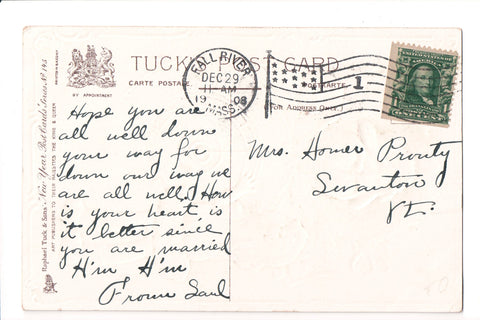 TUCK'S POST CARD
CARTE POSTALE
POSTKARTE.
BY APPOINTMENT
(For Address Only.)
FALL RIVER
DEC 29
11 AM
1908
MASS.
1
Raphael Tuck & Sons' "New Year Post Cards" Series No. 145
ART PUBLISHERS TO THEIR MAJESTIES THE KING & QUEEN
Hope you are
all well down
your way for
down our way we
are all well. How
is your heart, is
it better since
you are married
H'm H'm
From Saul
Mrs. Homer Prouty
Swanton
Vt.